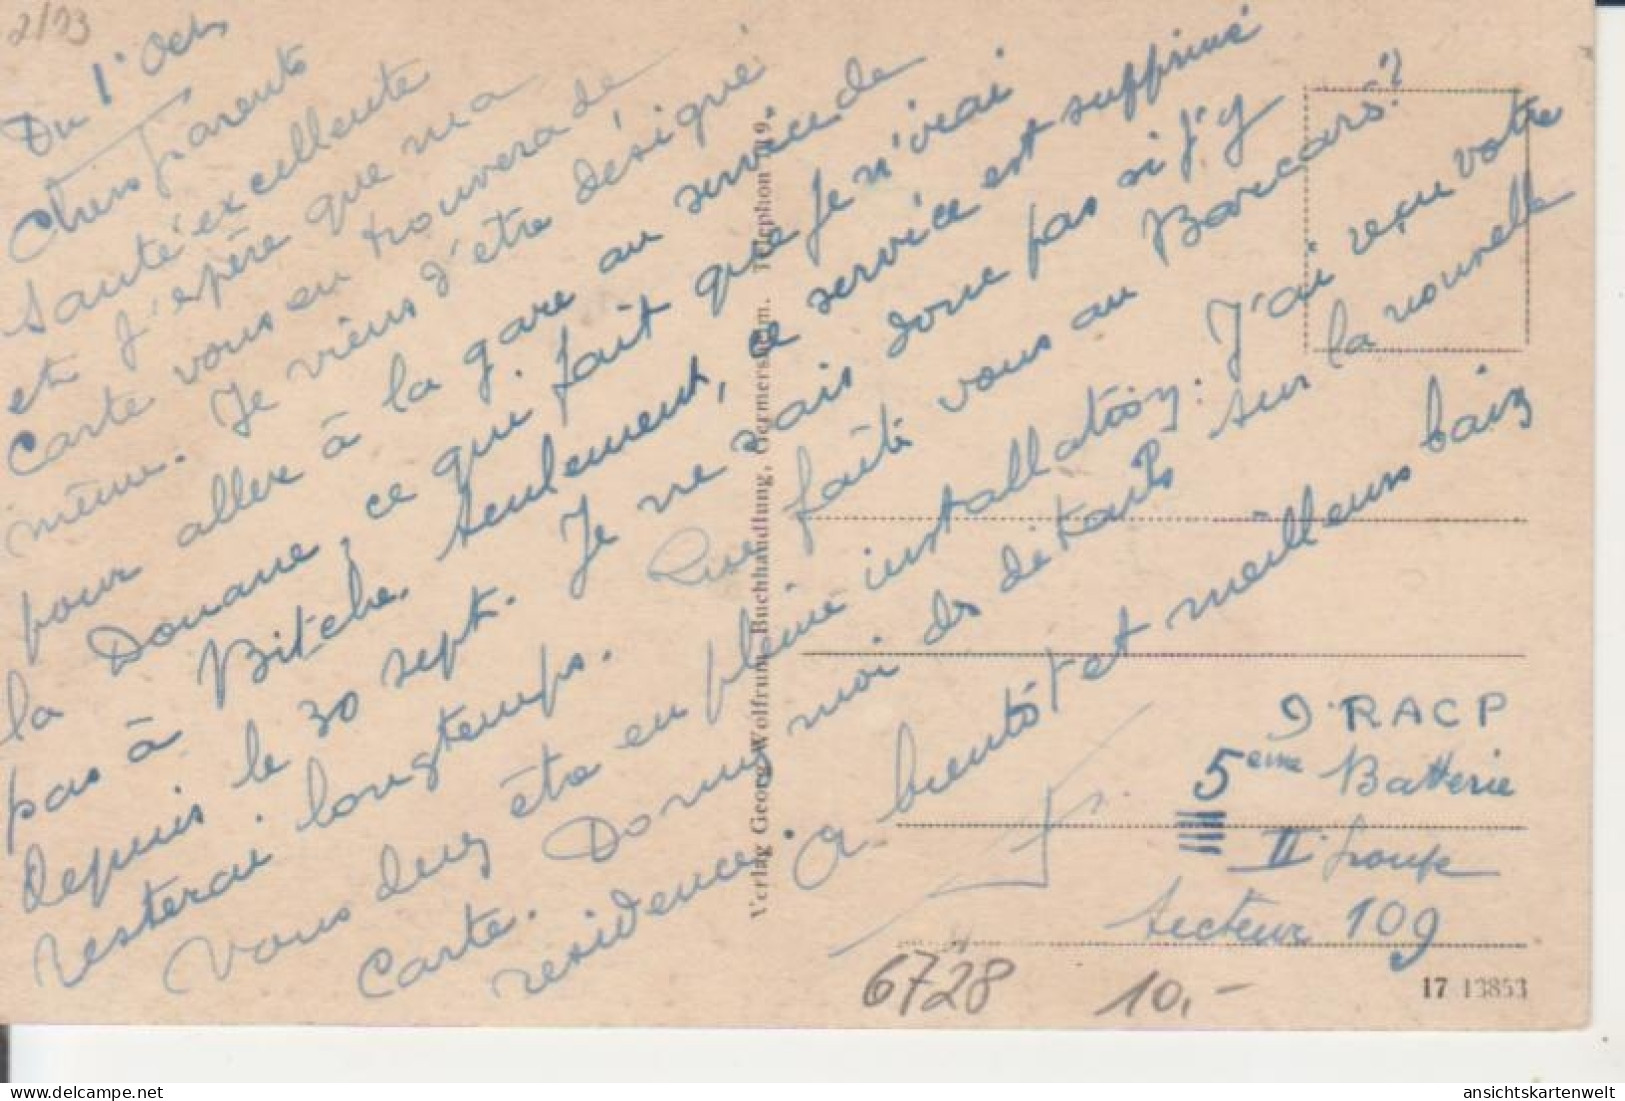 2/13
Du 1° Oct
Chers parents
Santé excellente
et j'espère que ma
Carte vous en trouvera de
même. Je viens d'être désigné
pour aller à la gare au service de
la Douane, ce qui fait que je n'irai
pas à Bitche. Seulement, ce service est supprimé
depuis le 30 sept. Je ne sais donc pas si j'y
resterai longtemps. Que faites vous au Barcarès?
Vous devez être en pleine installation. J'ai reçu votre
Carte. Donnez moi des détails sur la nouvelle
résidence. A bientôt et meilleurs baiz
Verlag Georg Wolfrum, Buchhandlung, Germersheim. Telephon 119.
9° RACP
5eme Batterie
II° Groupe
Secteur 109
6728 10.-
17 13853
ansichtskartenwelt
ansichtskartenwelt.de